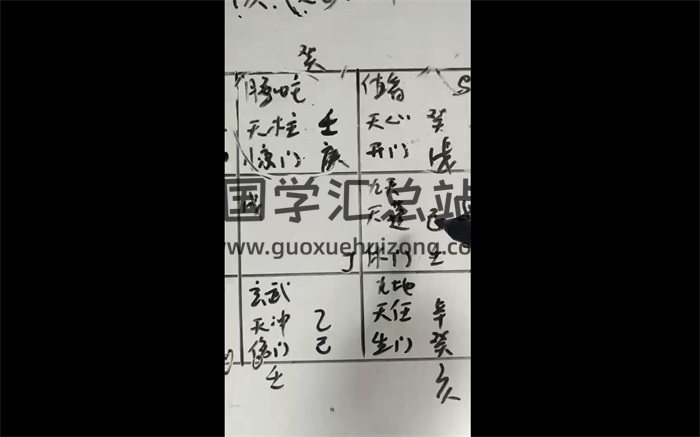 癸
腾蛇
天柱 壬
惊门 庚
值符
天心 癸
开门 戊
戊
九天
天蓬 己
丁 休门 壬
玄武
天冲 乙
伤门 己
九地
天任 辛
生门 癸
壬
亥
国学汇总站
www.guoxuehuizong.com